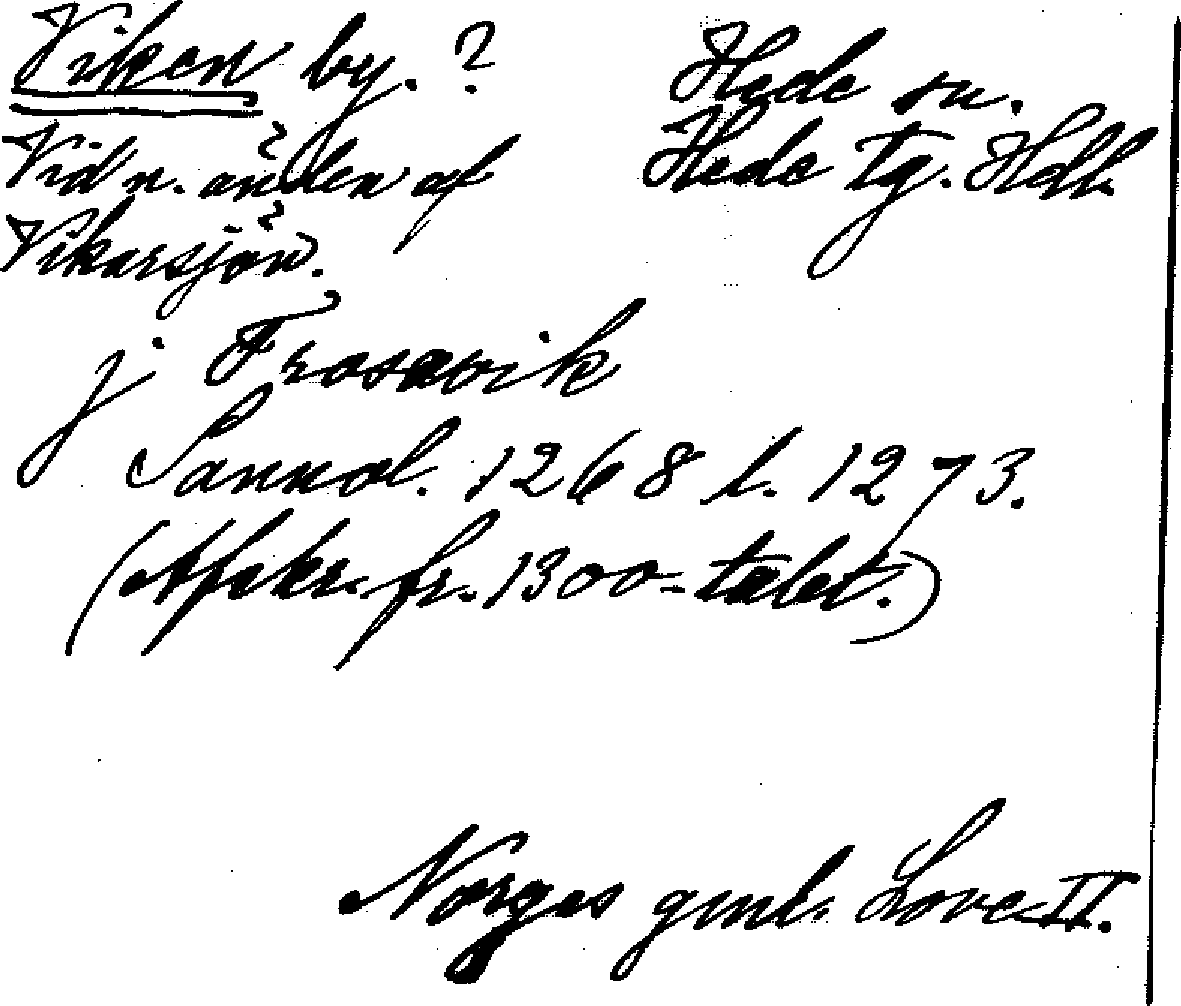 Viken by. ?
Hede sn.
Vid n. änden af
Hede tg. Hdl.
Vikarsjön.
j Frosavik
Sannol. 1268 l. 1273.
(Afskr. fr. 1300-talet.)
Norges gml. Love II.